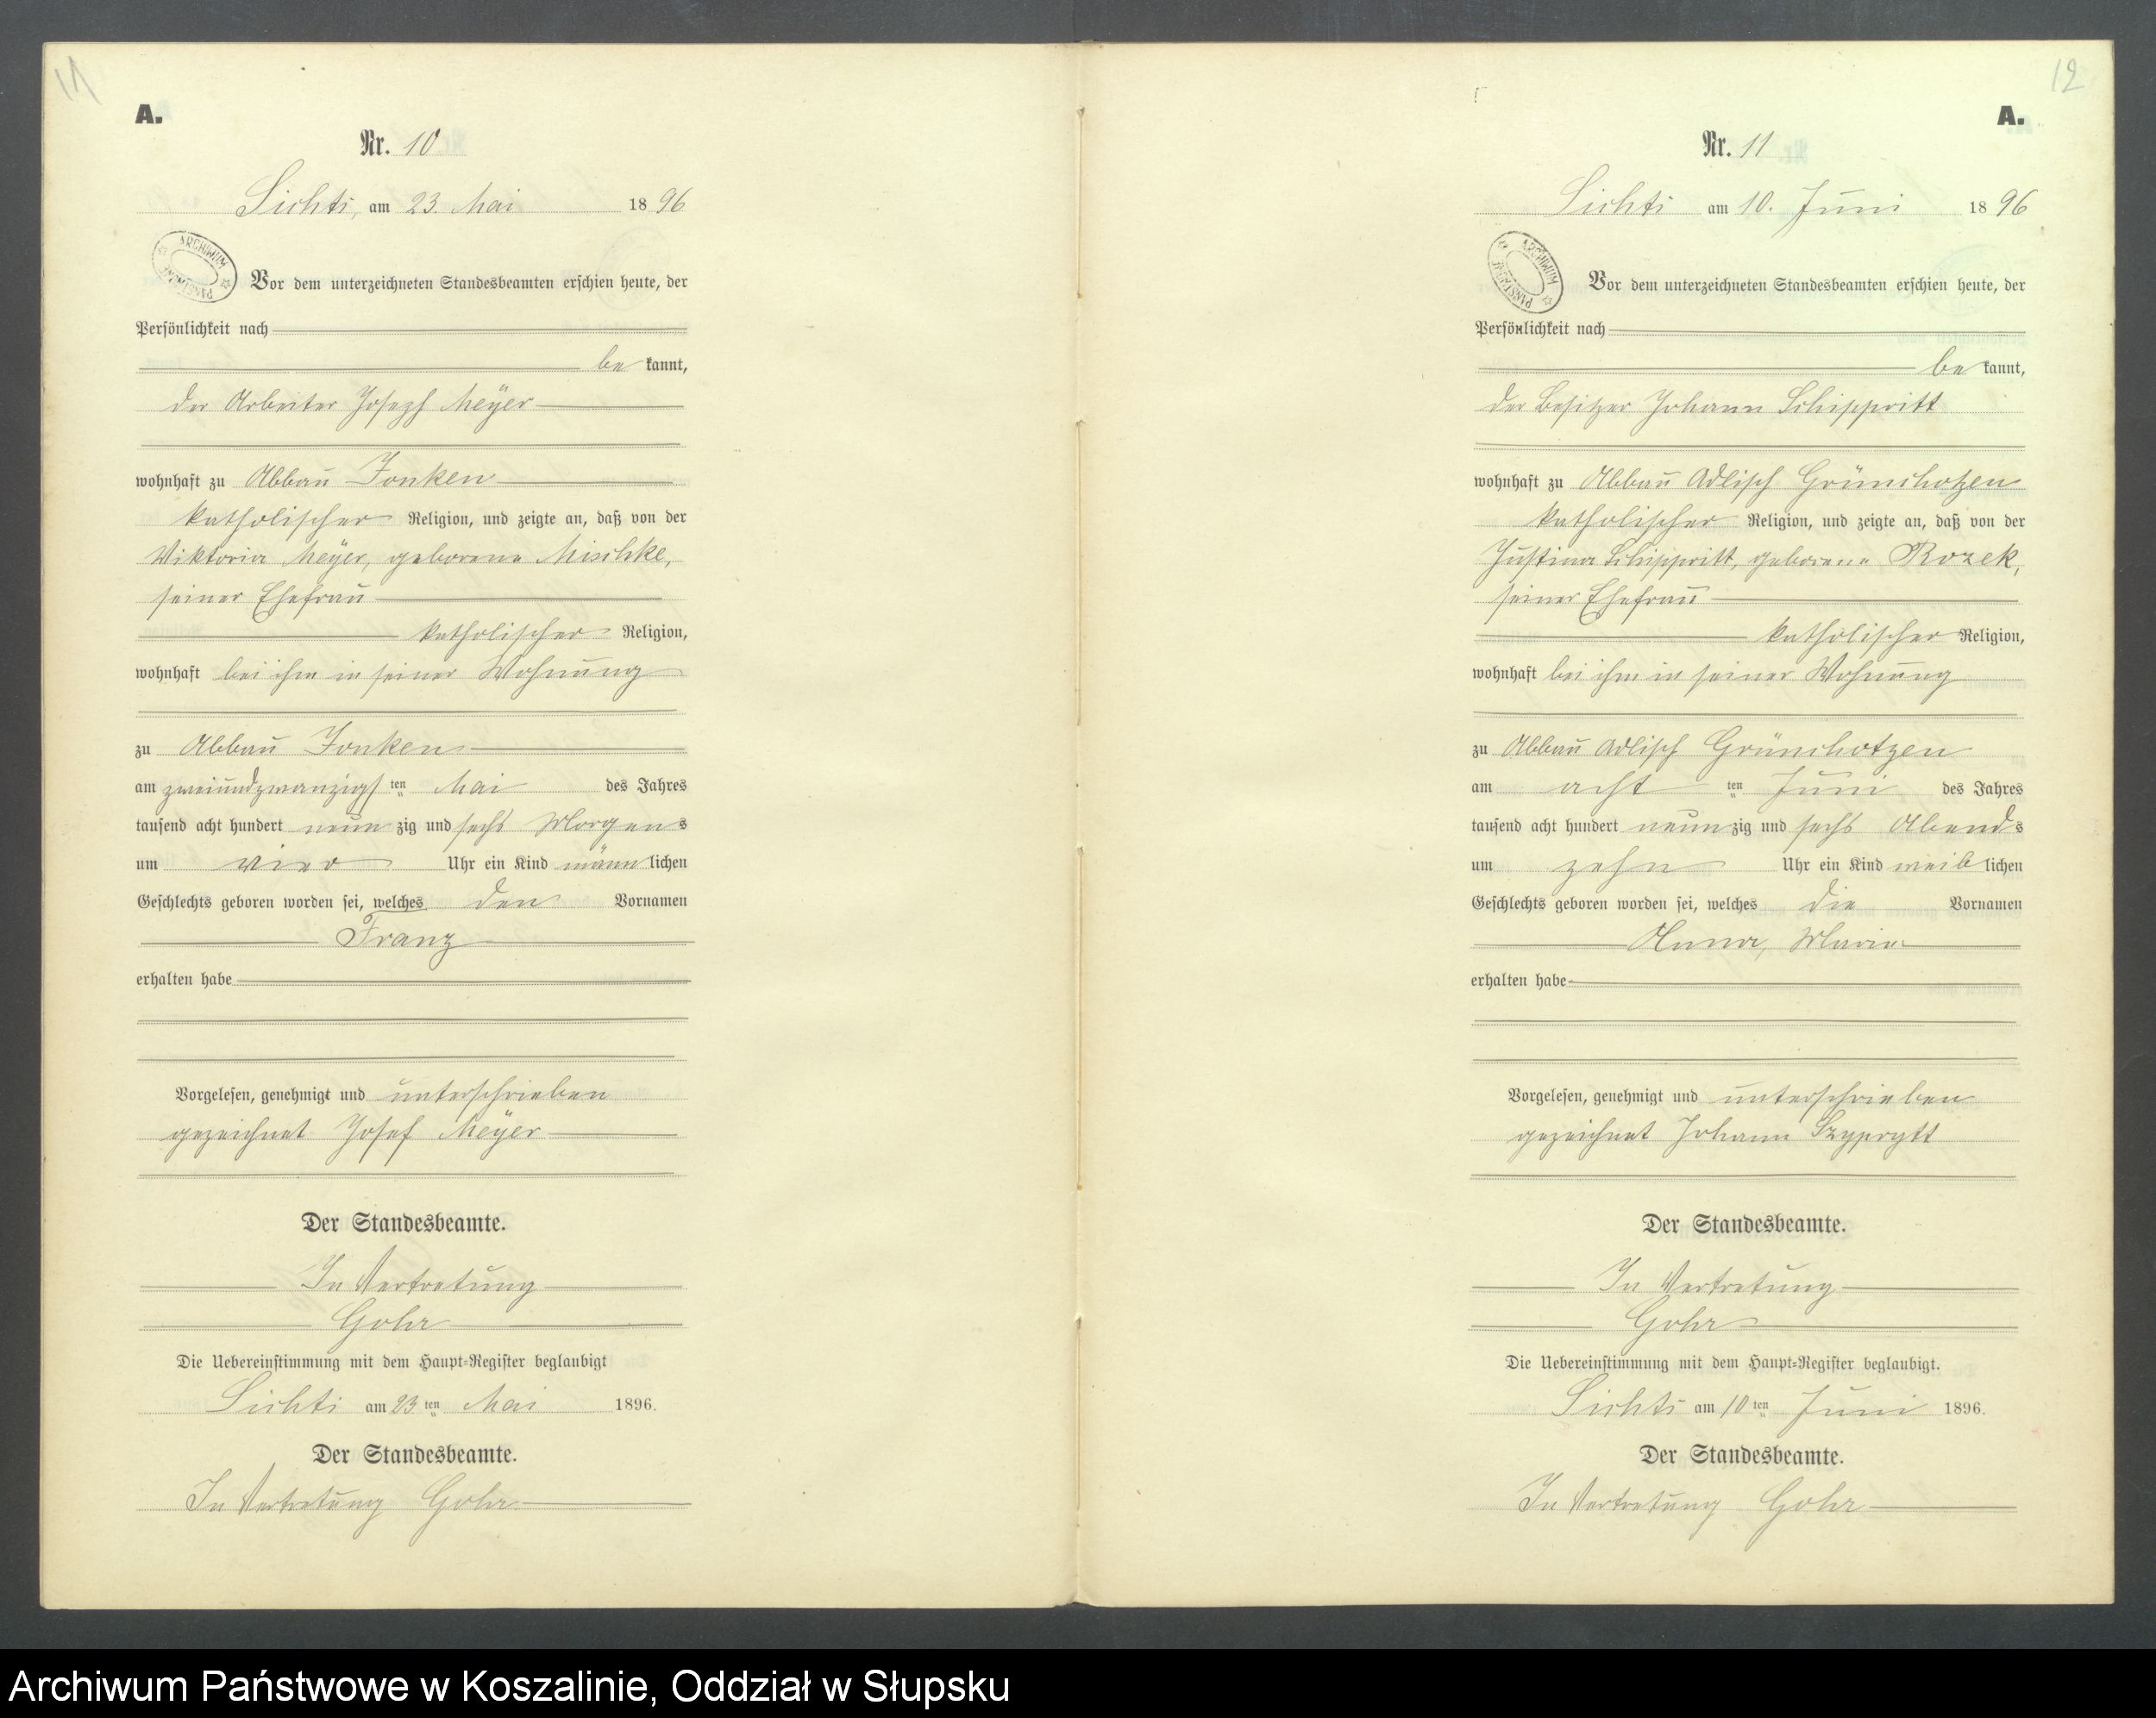 11
A.
Nr. 10
Sichts, am 23. Mai 1896
ARCHIWUM PAŃSTWOWE
Vor dem unterzeichneten Standesbeamten erschien heute, der
Persönlichkeit nach
be kannt,
der Arbeiter Joseph Meyer
wohnhaft zu Abbau Zonken
katholischer Religion, und zeigte an, daß von der
Viktoria Meyer, geborene Mischke,
seiner Ehefrau
katholischer Religion,
wohnhaft bei ihm in seiner Wohnung
zu Abbau Zonken
am zweiundzwanzigsten Mai des Jahres
tausend acht hundert neunzig und sechs Morgens
um vier Uhr ein Kind männlichen
Geschlechts geboren worden sei, welches den Vornamen
Franz
erhalten habe
Vorgelesen, genehmigt und unterschrieben
gezeichnet Josef Meyer
Der Standesbeamte.
In Vertretung
Gohr
Die Uebereinstimmung mit dem Haupt-Register beglaubigt
Sichts am 23ten Mai 1896.
Der Standesbeamte.
In Vertretung Gohr
12
A.
Nr. 11
Sichts am 10. Juni 1896
ARCHIWUM PAŃSTWOWE
Vor dem unterzeichneten Standesbeamten erschien heute, der
Persönlichkeit nach
be kannt,
der Besitzer Johann Schippritt
wohnhaft zu Abbau Adlisch Grünchotzen
katholischer Religion, und zeigte an, daß von der
Justina Schippritt, geborene Rozek,
seiner Ehefrau
katholischer Religion,
wohnhaft bei ihm in seiner Wohnung
zu Abbau Adlisch Grünchotzen
am achtten Juni des Jahres
tausend acht hundert neunzig und sechs Abends
um zehn Uhr ein Kind weiblichen
Geschlechts geboren worden sei, welches die Vornamen
Anna, Maria
erhalten habe
Vorgelesen, genehmigt und unterschrieben
gezeichnet Johann Szyprytt
Der Standesbeamte.
In Vertretung
Gohr
Die Uebereinstimmung mit dem Haupt-Register beglaubigt.
Sichts am 10ten Juni 1896.
Der Standesbeamte.
In Vertretung Gohr
Archiwum Państwowe w Koszalinie, Oddział w Słupsku